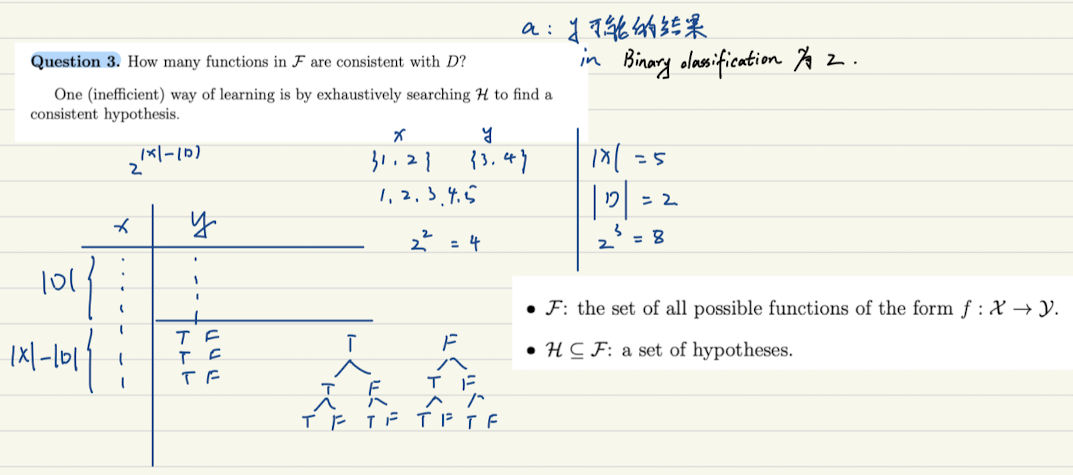 a : y 可能的结果
in Binary classification 为 2 .
Question 3. How many functions in F are consistent with D?
One (inefficient) way of learning is by exhaustively searching H to find a
consistent hypothesis.
2^|X|-|D|
x y
{1, 2} {3, 4}
1, 2, 3, 4, 5
2^2 = 4
|X| = 5
|D| = 2
2^3 = 8
x y
|D| {
|X|-|D| {
T F
T F
T F
T F
T F T F
T F T F T F T F
• F: the set of all possible functions of the form f : X → Y.
• H ⊆ F: a set of hypotheses.